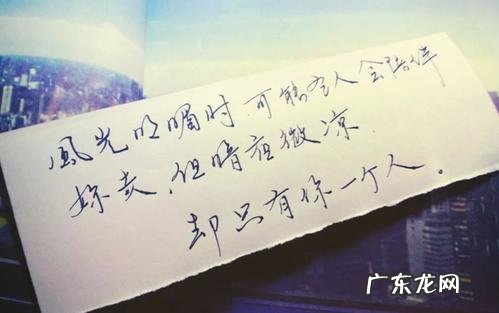 風光明媚时.可能容人会陪伴
妳走,但暗夜微凉.
却只有你一个人。
广东龙网